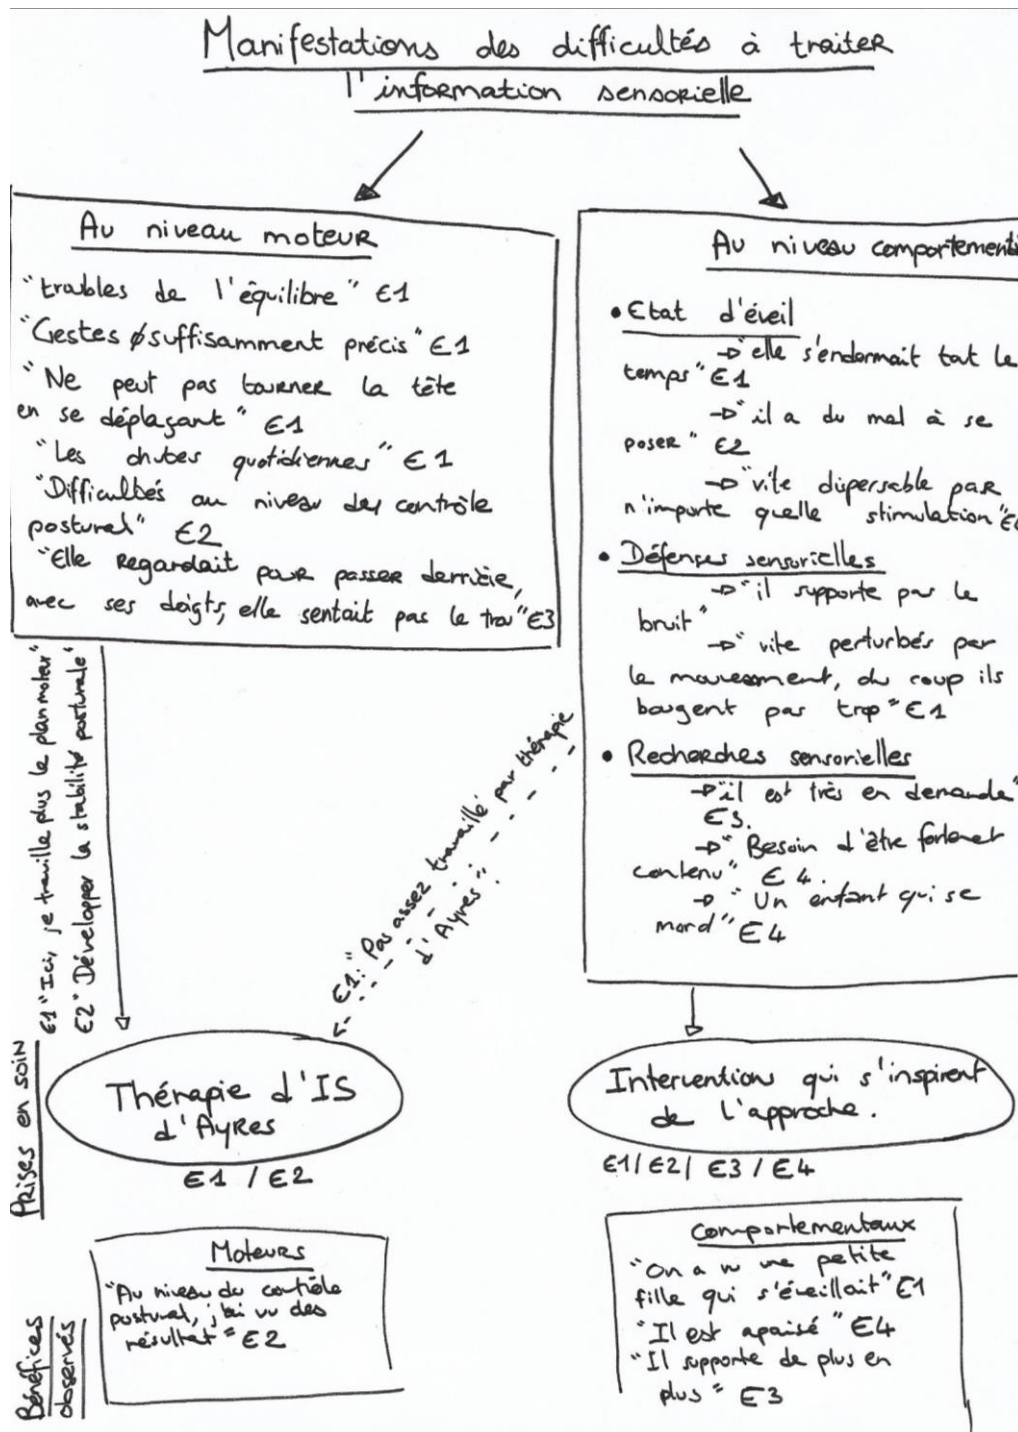 Manifestations des difficultés à traiter
l'information sensorielle
Au niveau moteur
"troubles de l'équilibre" E1
"Gestes ∅ suffisamment précis" E1
"Ne peut pas tourner la tête
en se déplaçant" E1
"Les chutes quotidiennes" E1
"Difficultés au niveau du contrôle
postural" E2
"Elle regardait pour passer derrière,
avec ses doigts, elle sentait pas le trou" E3
Au niveau comportementa
• Etat d'éveil
→ "elle s'endormait tout le
temps" E1
→ "il a du mal à se
poser" E2
→ "vite dispersable par
n'importe quelle stimulation"
• Défenses sensorielles
→ "il supporte pas le
bruit"
→ "vite perturbés par
le mouvement, du coup ils
bougent pas trop" E1
• Recherches sensorielles
→ "il est très en demande"
E3.
→ "Besoin d'être fortement
contenu" E4.
→ "Un enfant qui se
mord" E4
E1 "Ici, je travaille plus le plan moteur"
E2 "Développer la stabilité posturale"
E1: "Pas assez travaillé par thérapie
d'Ayres".
Prises en soin
Thérapie d'IS
d'Ayres
E1 / E2
Interventions qui s'inspirent
de l'approche.
E1/ E2/ E3 / E4
Bénéfices
observés
Moteurs
"Au niveau du contrôle
postural, j'ai vu des
résultat" E2
Comportementaux
"On a vu une petite
fille qui s'éveillait" E1
"Il est apaisé" E4
"Il supporte de plus en
plus" E3